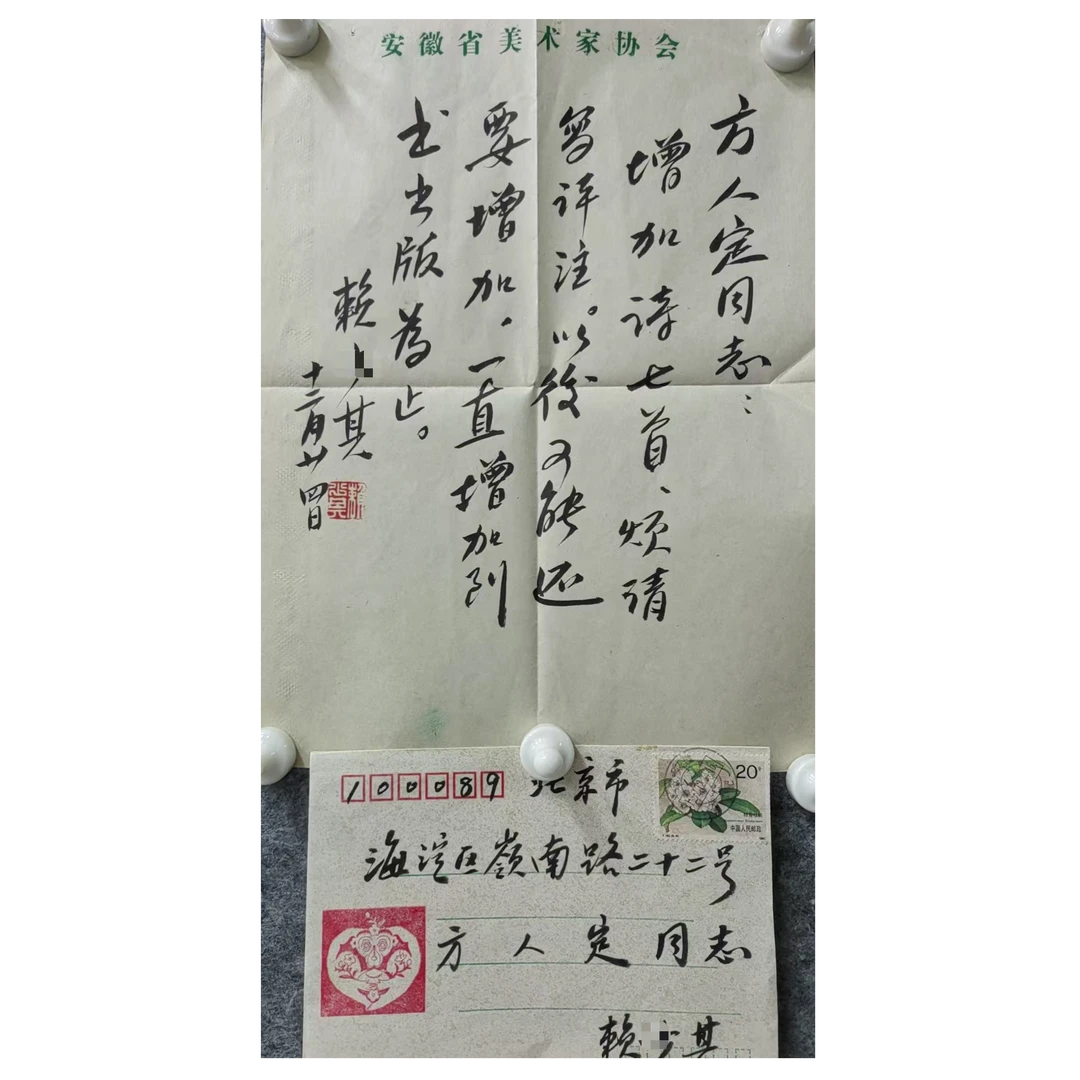 安徽省美术家协会
方人定同志：
增加诗七首、烦请
写评注。以後可能还
要增加，一直增加到
书出版為止。
赖 其
十二月廿四日
100089 北京市
20
中国人民邮政
海淀区嶺南路二十二号
方人定同志
赖 其